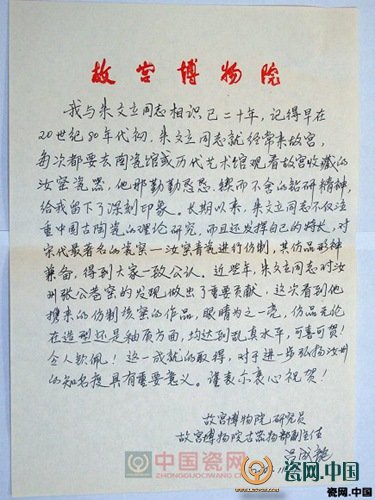 故宫博物院
我与朱文立同志相识已二十年，记得早在
20世纪80年代初，朱文立同志就经常来故宫，
每次都要去陶瓷馆或历代艺术馆观看故宫收藏的
汝窑瓷器，他那勤勤恳恳、锲而不舍的钻研精神，
给我留下了深刻印象。长期以来，朱文立同志不仅注
重中国古陶瓷的理论研究，而且还发挥自己的特长，对
宋代最著名的瓷窑—汝窑青瓷进行仿制，其仿品形神
兼备，得到大家一致公认。近些年，朱文立同志对汝
州张公巷窑的发现做出了重要贡献。这次看到他
携来的仿制该窑的作品，眼睛为之一亮，仿品无论
在造型还是釉质方面，均达到乱真水平，可喜可贺！
令人钦佩！这一成就的取得，对于进一步弘扬汝州
的知名度具有重要意义。谨表示衷心祝贺！
故宫博物院研究员
故宫博物院古器物部副主任
吕成龙
中国瓷网
ZHONGGUOCIWANG.COM
瓷网.中国
瓷网.中国